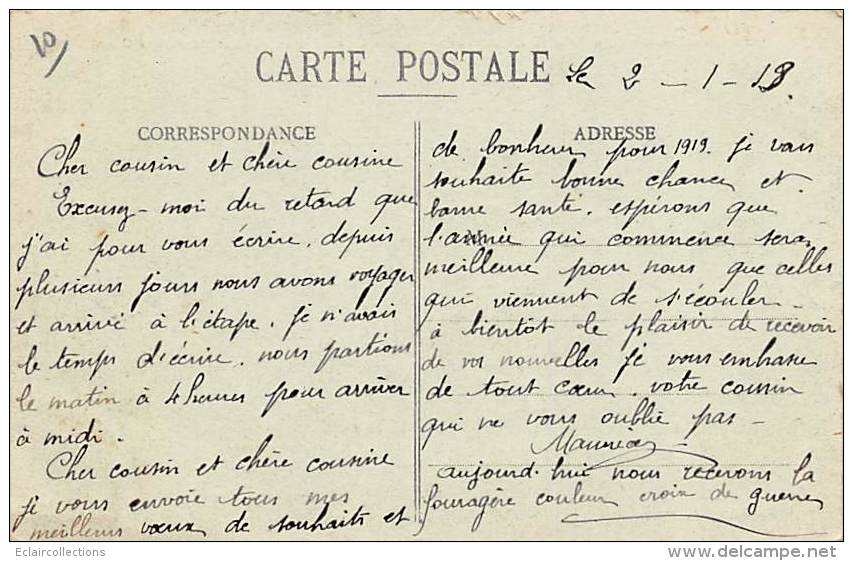 10
CARTE POSTALE
Le 2 - 1 - 19.
CORRESPONDANCE
Cher cousin et chère cousine
Excusez-moi du retard que
j'ai pour vous écrire, depuis
plusieurs jours nous avons voyager
et arrivé à l'étape. je n'avais
le temps d'écrire. nous partions
le matin à 4 heures pour arriver
à midi.
Cher cousin et chère cousine
je vous envoie tous mes
meilleurs vœux de souhaits et
ADRESSE
de bonheur pour 1919. je vous
souhaite bonne chance et
bonne santé. espérons que
l'année qui commence sera
meilleure pour nous que celles
qui viennent de s'écouler -
à bientôt le plaisir de recevoir
de vos nouvelles je vous embrasse
de tout cœur. votre cousin
qui ne vous oublie pas -
Maurice -
aujourd'hui nous recevons la
fouragère couleur croix de guerre
Eclaircollections
delcampe.net